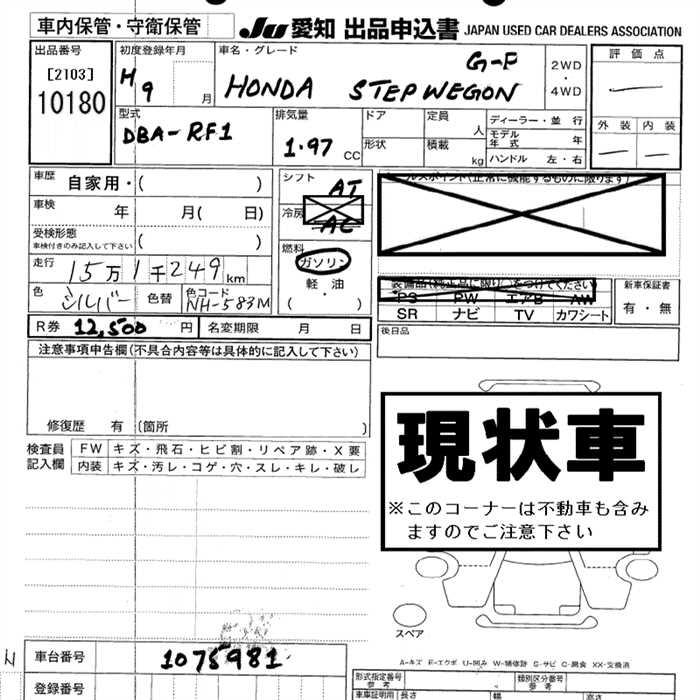 車内保管・守衛保管
JU 愛知 出品申込書 JAPAN USED CAR DEALERS ASSOCIATION
出品番号
[2103]
10180
初度登録年月
H9 月
車名・グレード
G-F
HONDA STEPWEGON
2WD
・
4WD
評価点
外装 内装
型式
DBA-RF1
排気量
1.97 CC
ドア
形状
定員
人
積載
kg
ディーラー・並 行
モデル年式 年
ハンドル 左・右
車歴
自家用・( )
車検
年 月( 日)
受検形態
車検付きのみ記入して下さい ( )
走行
15万1千249km
色
シルバー
色替
色コード
NH-583M
シフト
AT
冷房
AC
燃料
ガソリン
軽・油
( )
ルスポイント(正常に機能するものに限ります)
装備品(純正品に限り○をつけてください)
PS PW エアB AW
SR ナビ TV カワシート
新車保証書
有・無
R券 12,500 円
名変期限 月 日
後日品
注意事項申告欄(不具合内容等は具体的に記入して下さい)
修復歴 有 (箇所 )
検査員
記入欄
FW キズ・飛石・ヒビ割・リペア跡・X要
内装 キズ・汚レ・コゲ・穴・スレ・キレ・破レ
現状車
※このコーナーは不動車も含み
ますのでご注意下さい
スペア
A-キズ E-エクボ U-凹み W-補修跡 S-サビ C-腐食 XX-交換済
車台番号
1075981
登録番号
形式指定番号
類別区分番号
車証明用 長さ 幅 高さ